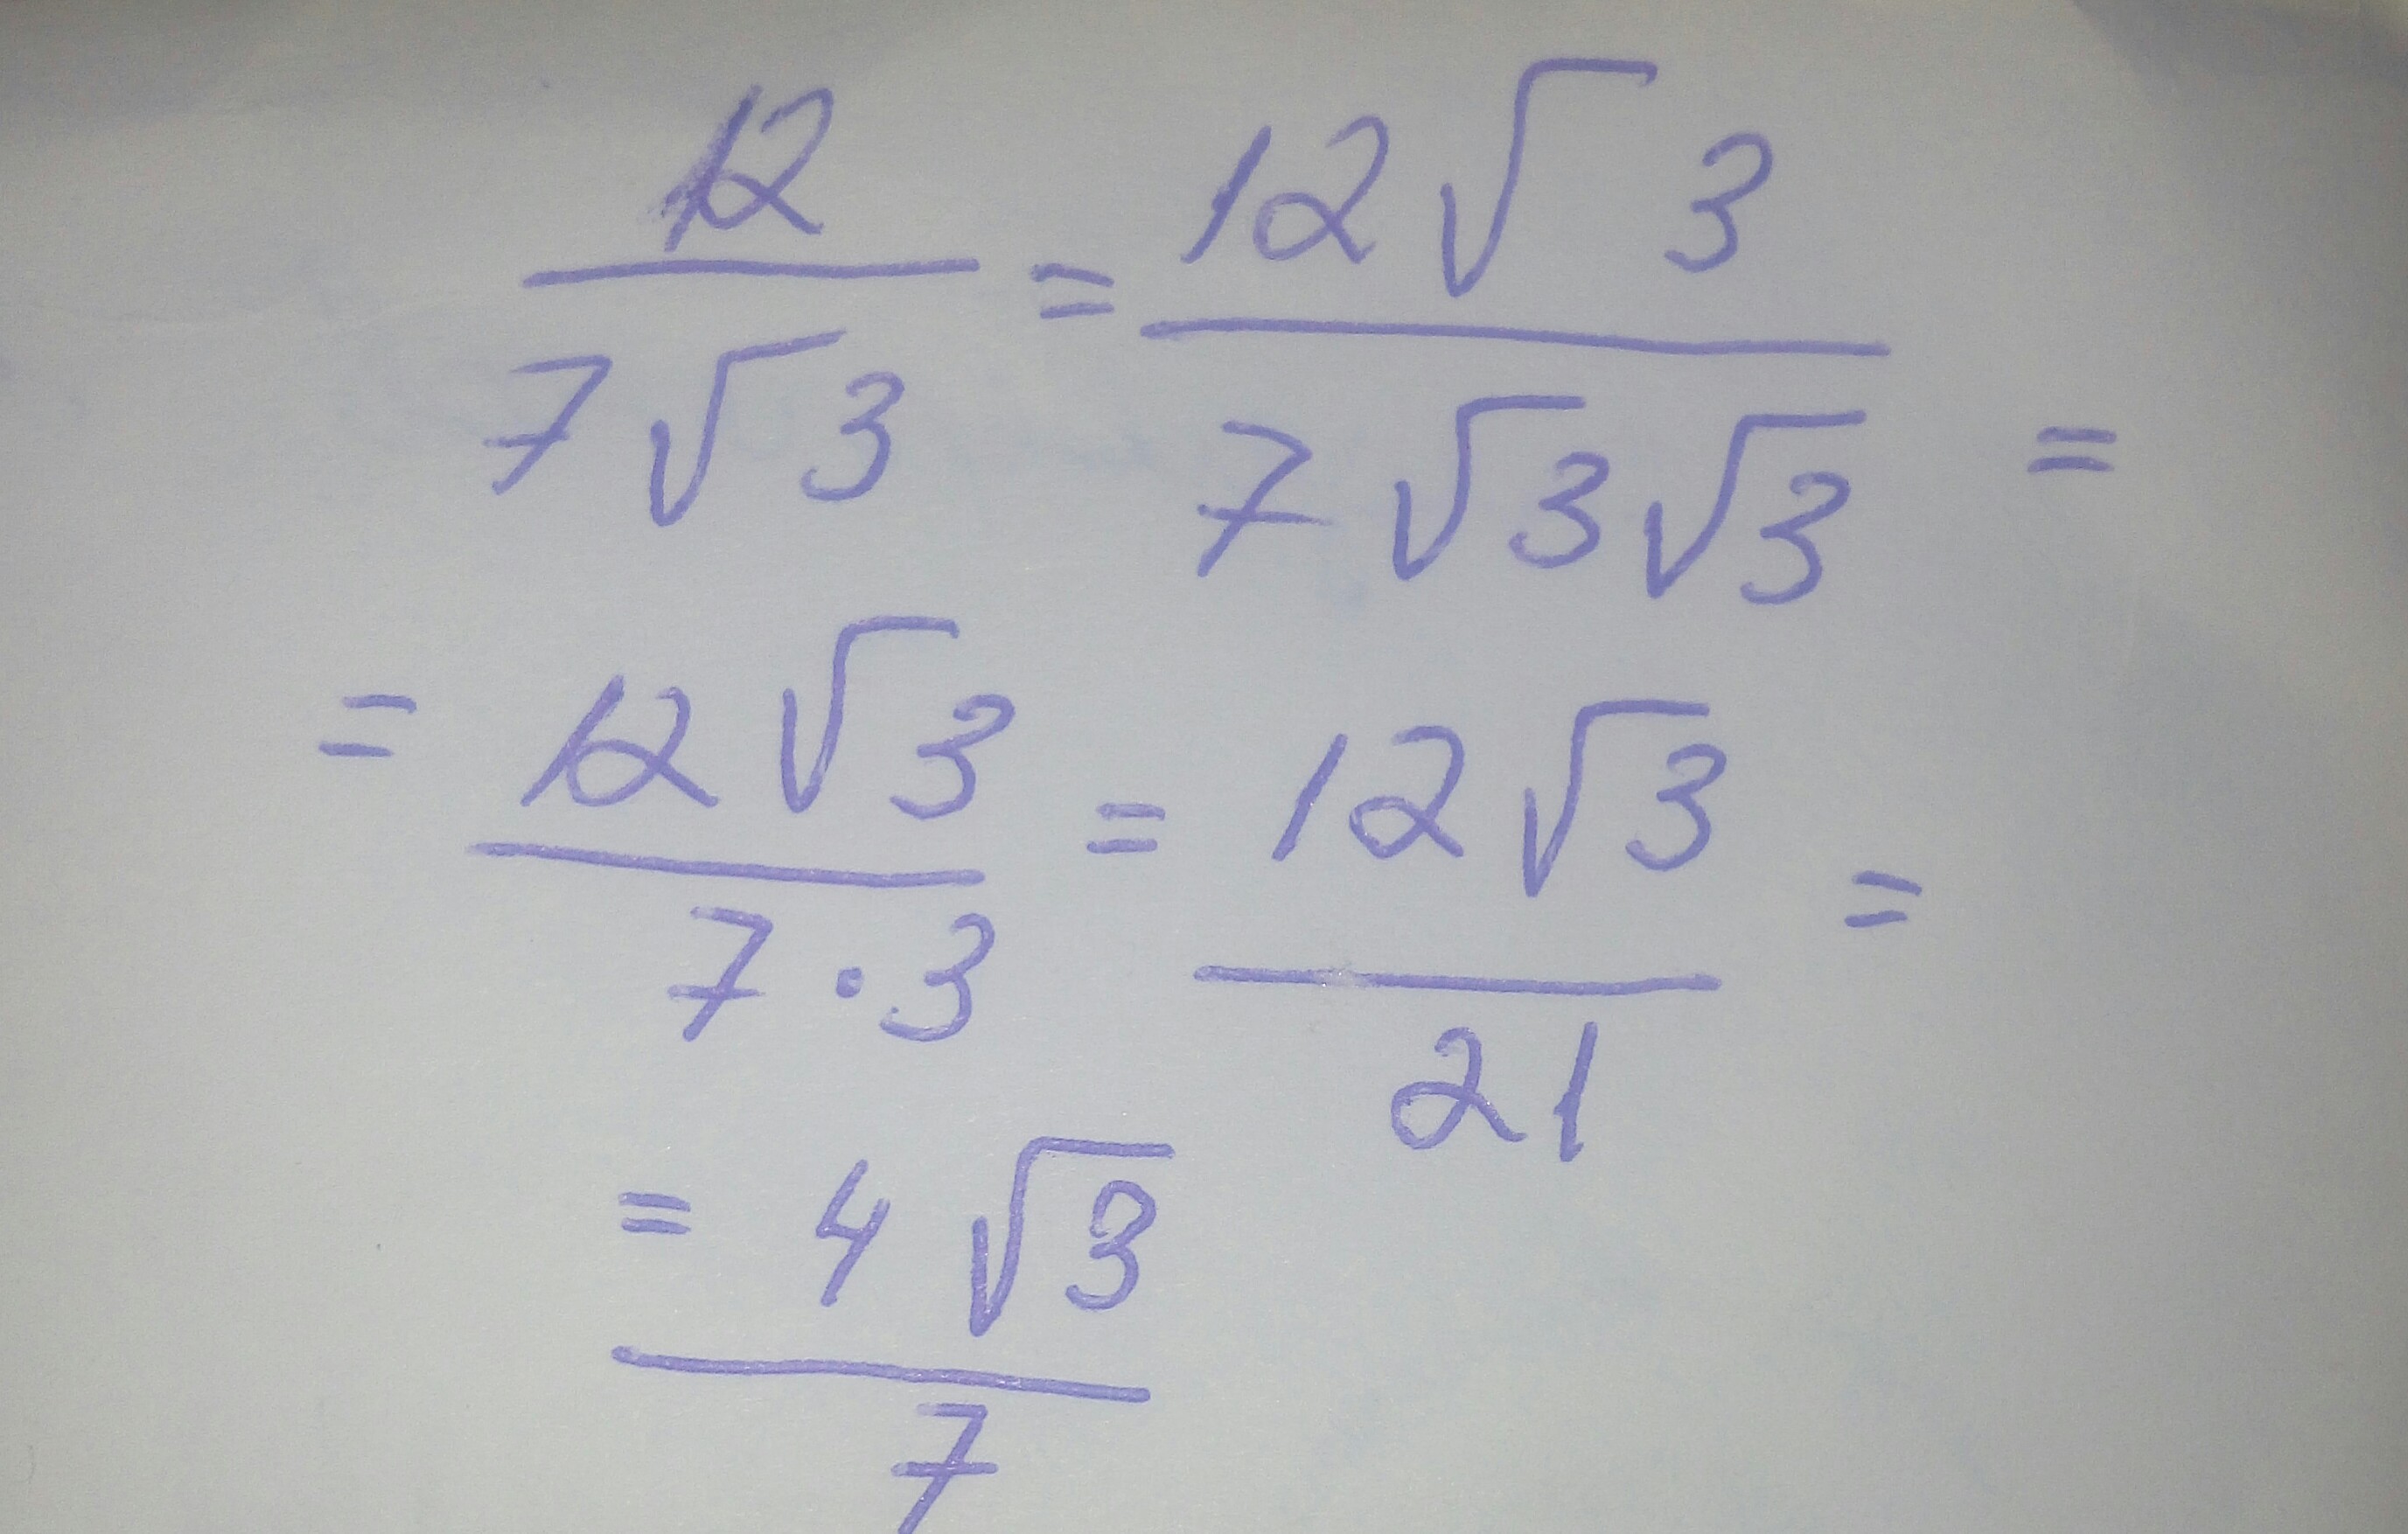 12/(7√3) = (12√3)/(7√3√3) =
= (12√3)/(7·3) = (12√3)/21 =
= (4√3)/7